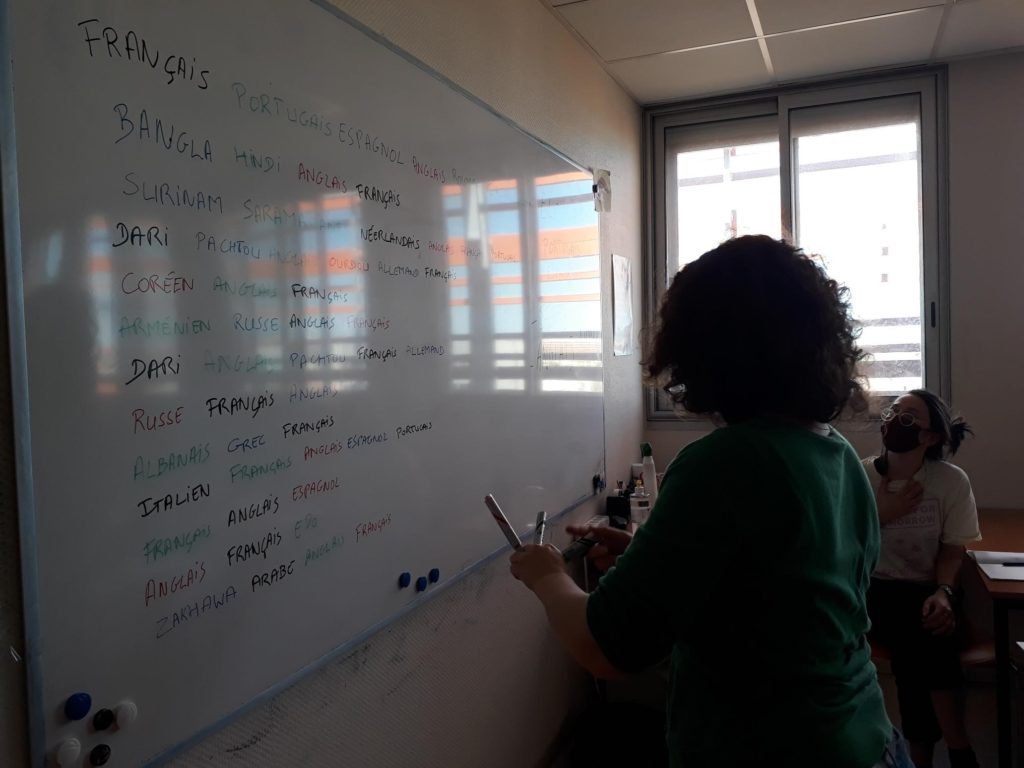 FRANÇAIS PORTUGAIS ESPAGNOL ANGLAIS
BANGLA HINDI ANGLAIS FRANÇAIS
SURINAM NÉERLANDAIS ANGLAIS
DARI PACHTOU ANGLAIS OURDOU ALLEMAND FRANÇAIS
CORÉEN ANGLAIS FRANÇAIS
ARMÉNIEN RUSSE ANGLAIS FRANÇAIS
DARI ANGLAIS PACHTOU FRANÇAIS ALLEMAND
RUSSE FRANÇAIS ANGLAIS
ALBANAIS GREC FRANÇAIS
ITALIEN FRANÇAIS ANGLAIS ESPAGNOL PORTUGAIS
FRANÇAIS ANGLAIS ESPAGNOL
ANGLAIS FRANÇAIS EDO
ZAKHAWA ARABE ANGLAIS FRANÇAIS